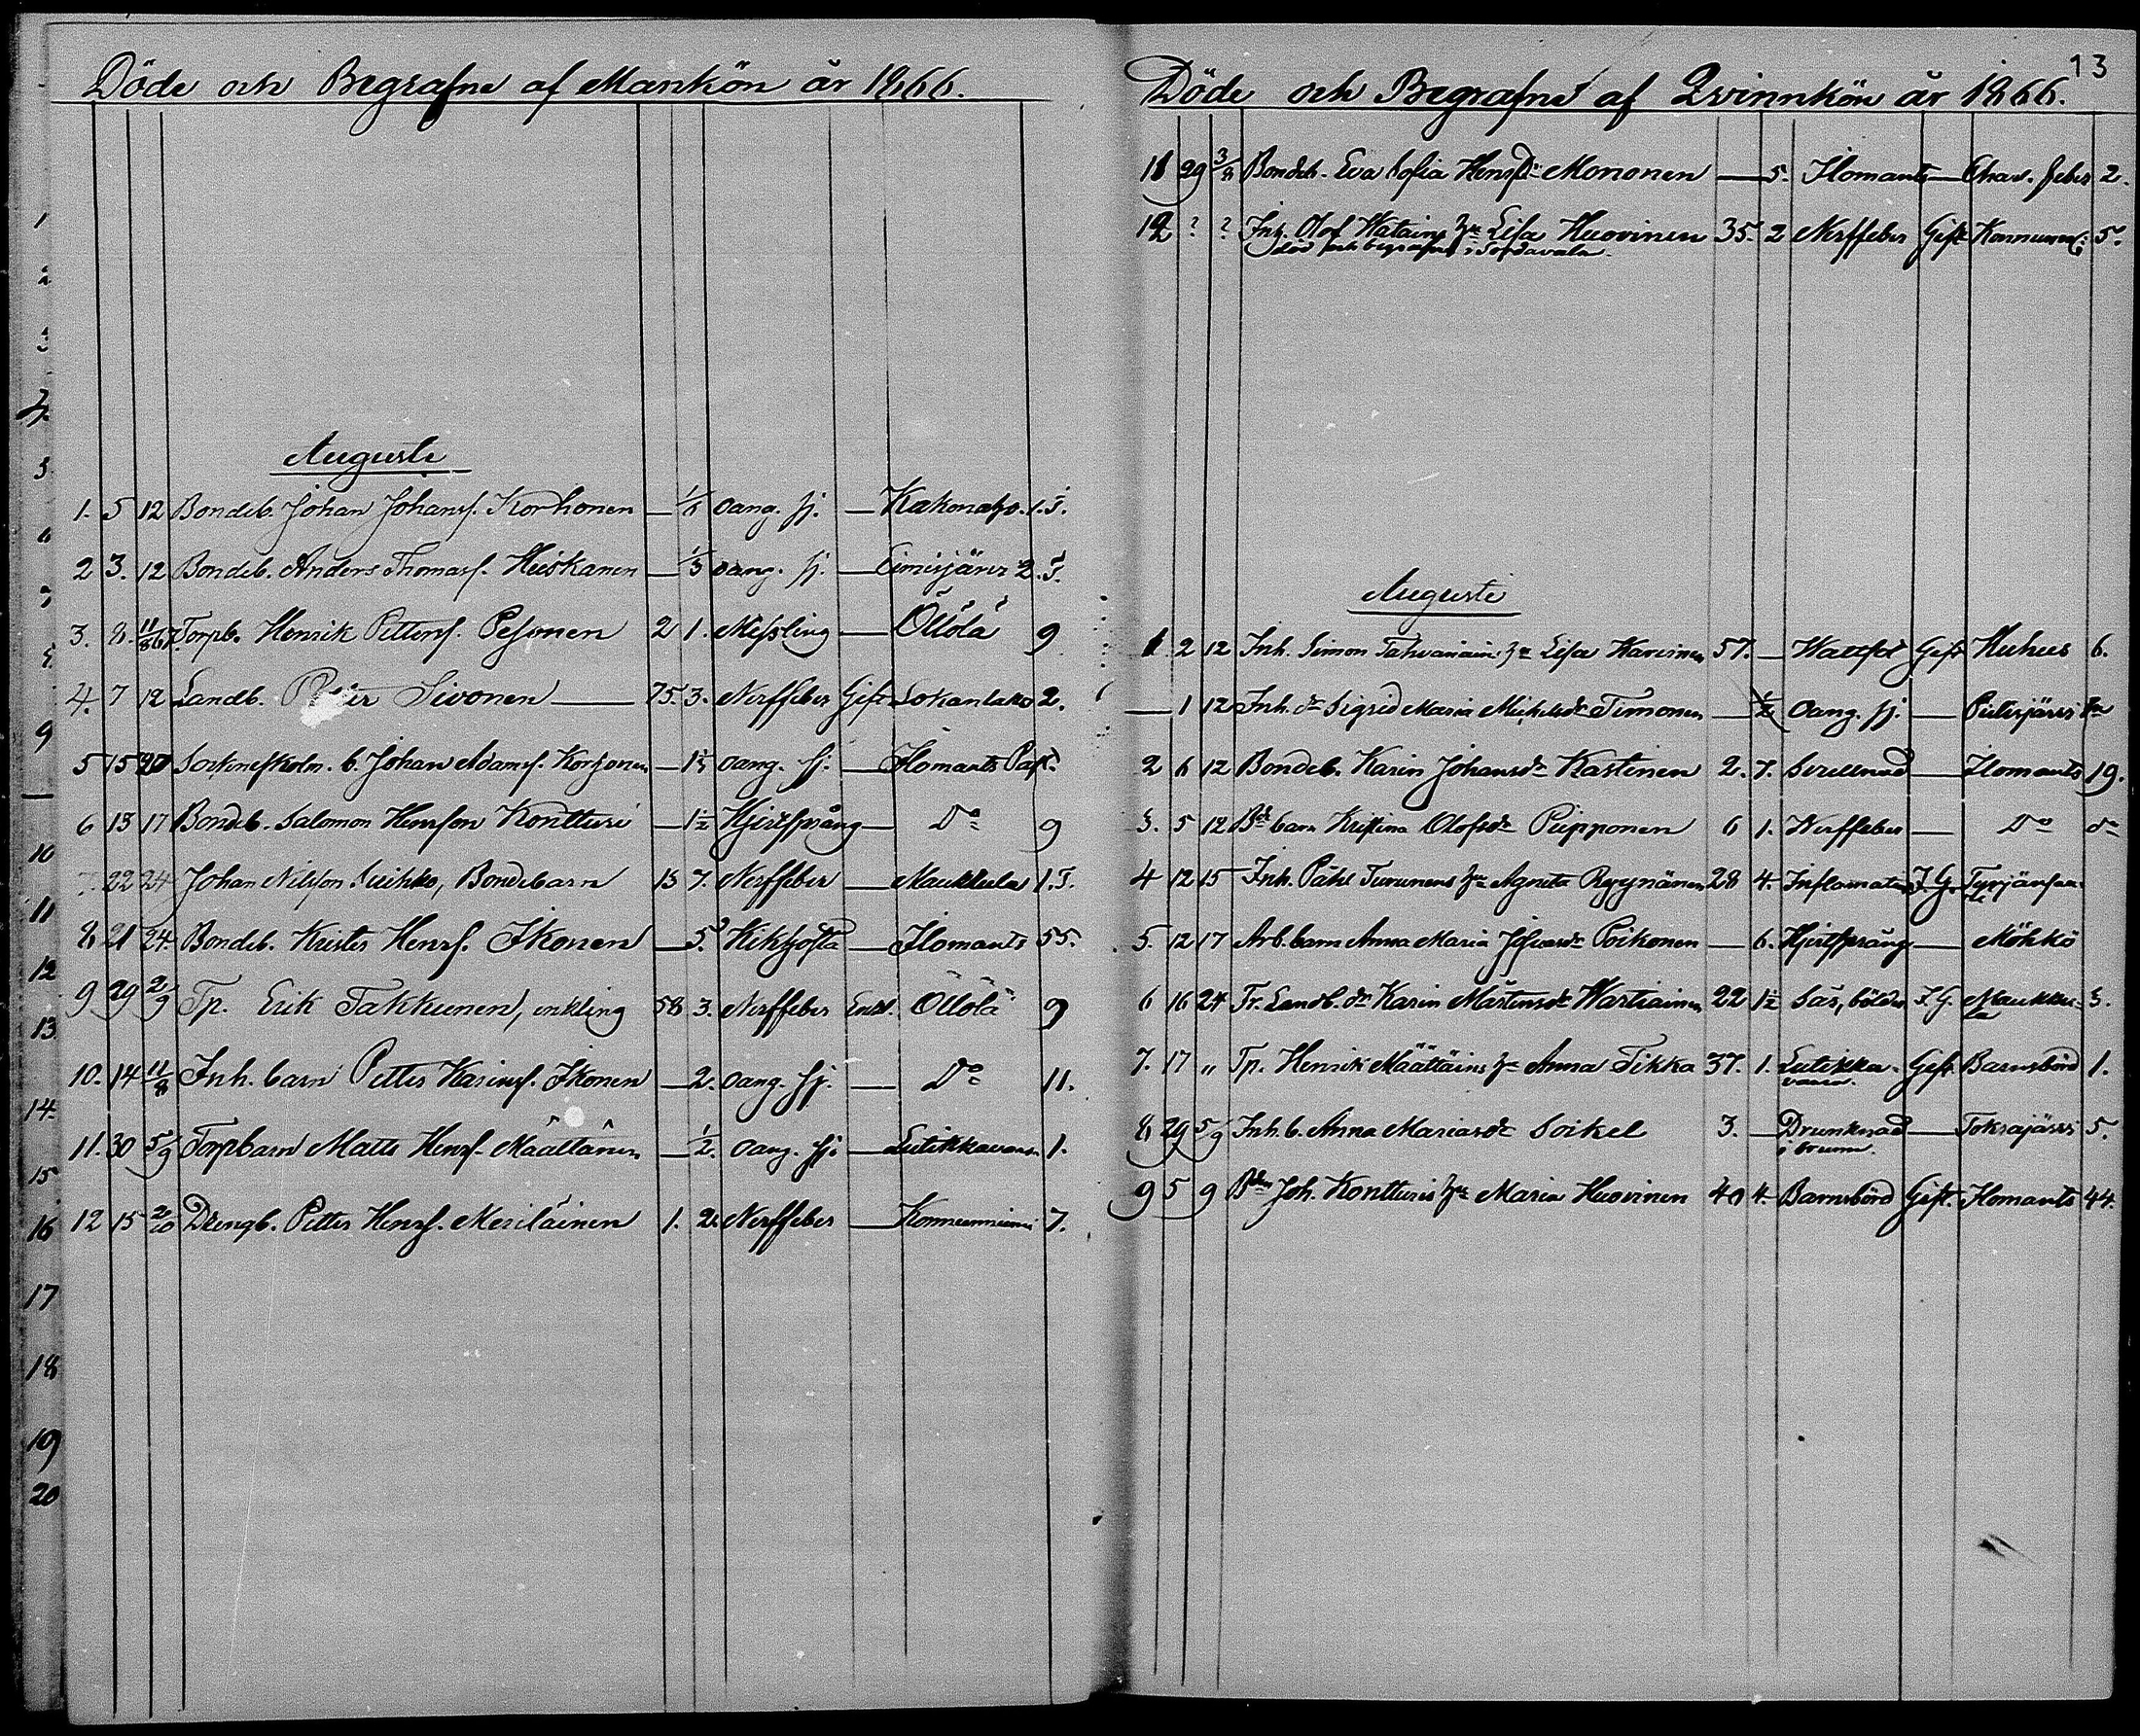 Döde och Begrafne af Mankön år 1866.
Augusti
1. 5 12 Bondeb. Johan Johansf. Korhonen — 1/6 oang. sj. — 1. T.
2 3. 12 Bondeb. Anders Thomasf. Heiskanen — 1/3 oang. sj. — 2. T.
3. 8. Torpb. Henrik Pettersf. Pesonen 2 1. Messling — Ollola 9
4. 7 12 Landb. Sivonen — 75. 3. Nerffeber Gift 2.
5 15 b. Johan Adamsf. Korhonen — oang. sj. — Ilomants
6 13 17 Bondeb. Salomon Henrson Kontturi — 1½ Hjertsprång — Do 9
7. 22 24 Johan Nilsson Suihko, Bondebarn 13 7. Nerffeber — Maukkula 1. T.
8 21 24. Bondeb. Krister Henrf. Ikonen — 5. Kikhosta — Ilomants 55.
9 29 2/9 Tp. Erik Takkunen, enkling 58 3. Nerffeber Enkl. Ollola 9
10. 14 11/8 Inh. barn Petter Karinsf. Ikonen — 2. oang. sj. — Do 11.
11. 30 5/9 Torpbarn Matts Henrf. Määttänen — ½. oang. sj. — Lutikkavaara 1.
12 15 Drengb. Petter Henrf. Meriläinen 1. 2. Nerffeber — Konnunniemi 7.
1
2
3
4.
5.
6
9
10
11
12
13.
14.
15
16
17
18
19
20
13
Döde och Begrafne af Qvinnkön år 1866.
11 29 3/8 Bondeb. Eva Sofia Henrsdr Mononen — 5. Ilomants — 2.
12 ? ? Inh. Olof hu Lisa Huovinen 35. 2 Nerffeber Gift 5.
död och begrafven i Sordavala.
Augusti
1 2 12 Inh. Simon Tahvanain. hu Lisa Karvinen 57. — Wattsot Gift Huhus 6.
— 1 12 Inh. dr Sigrid Maria Michelsdr Timonen — ½ oang. sj. —
2 6 12 Bondeb. Karin Johansdr Kastinen 2. 7. — Ilomants 19.
3. 5 12 Bde barn Kristina Olofsdr Piipponen 6 1. Nerffeber — Do do
4 12 15 Inh. Påhl Turunens hu Agneta Ryynänen 28 4. I. G.
5. 12 17 Arb. barn Anna Maria Poikonen — 6. Hjertsprång — Möhkö
6 16 24 Fr. Landb. dr Karin Mårtensdr Wartiainen 22 1½ Sår, bölder I. G. Maukku- 3.
la
7. 17 „ Tp. Henrik Määttäins hu Anna Tikka 37. 1. Lutikka- Gift Barnsbörd 1.
vaara.
8 29 5/9 Inh. b. Anna Mariasdr Soikel 3. — Drunknad — Tokrajärvi 5.
i brunn.
9 5 9 Bden Joh. Kontturis hu Maria Huovinen 40 4. Barnsbörd Gift. Ilomants 44.